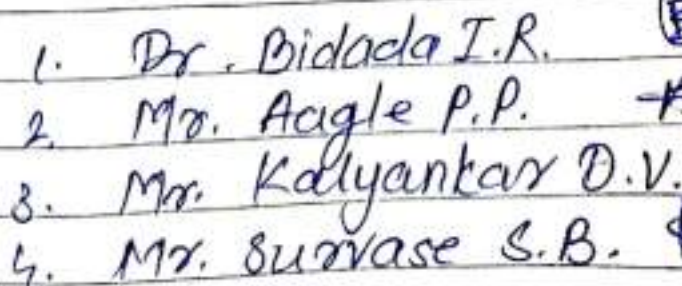 1. Dr. Bidada I.R.
2. Mr. Aagle P.P.
3. Mr. Kalyankar D.V.
4. Mr. Survase S.B.